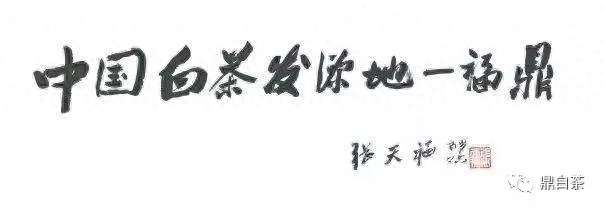 中国白茶发源地一福鼎
张天福题
鼎白茶